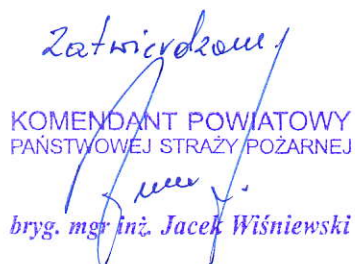 Zatwierdzam
KOMENDANT POWIATOWY
PAŃSTWOWEJ STRAŻY POŻARNEJ
bryg. mgr inż. Jacek Wiśniewski